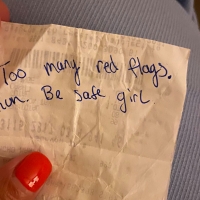 Too many red flags.
un. Be safe girl